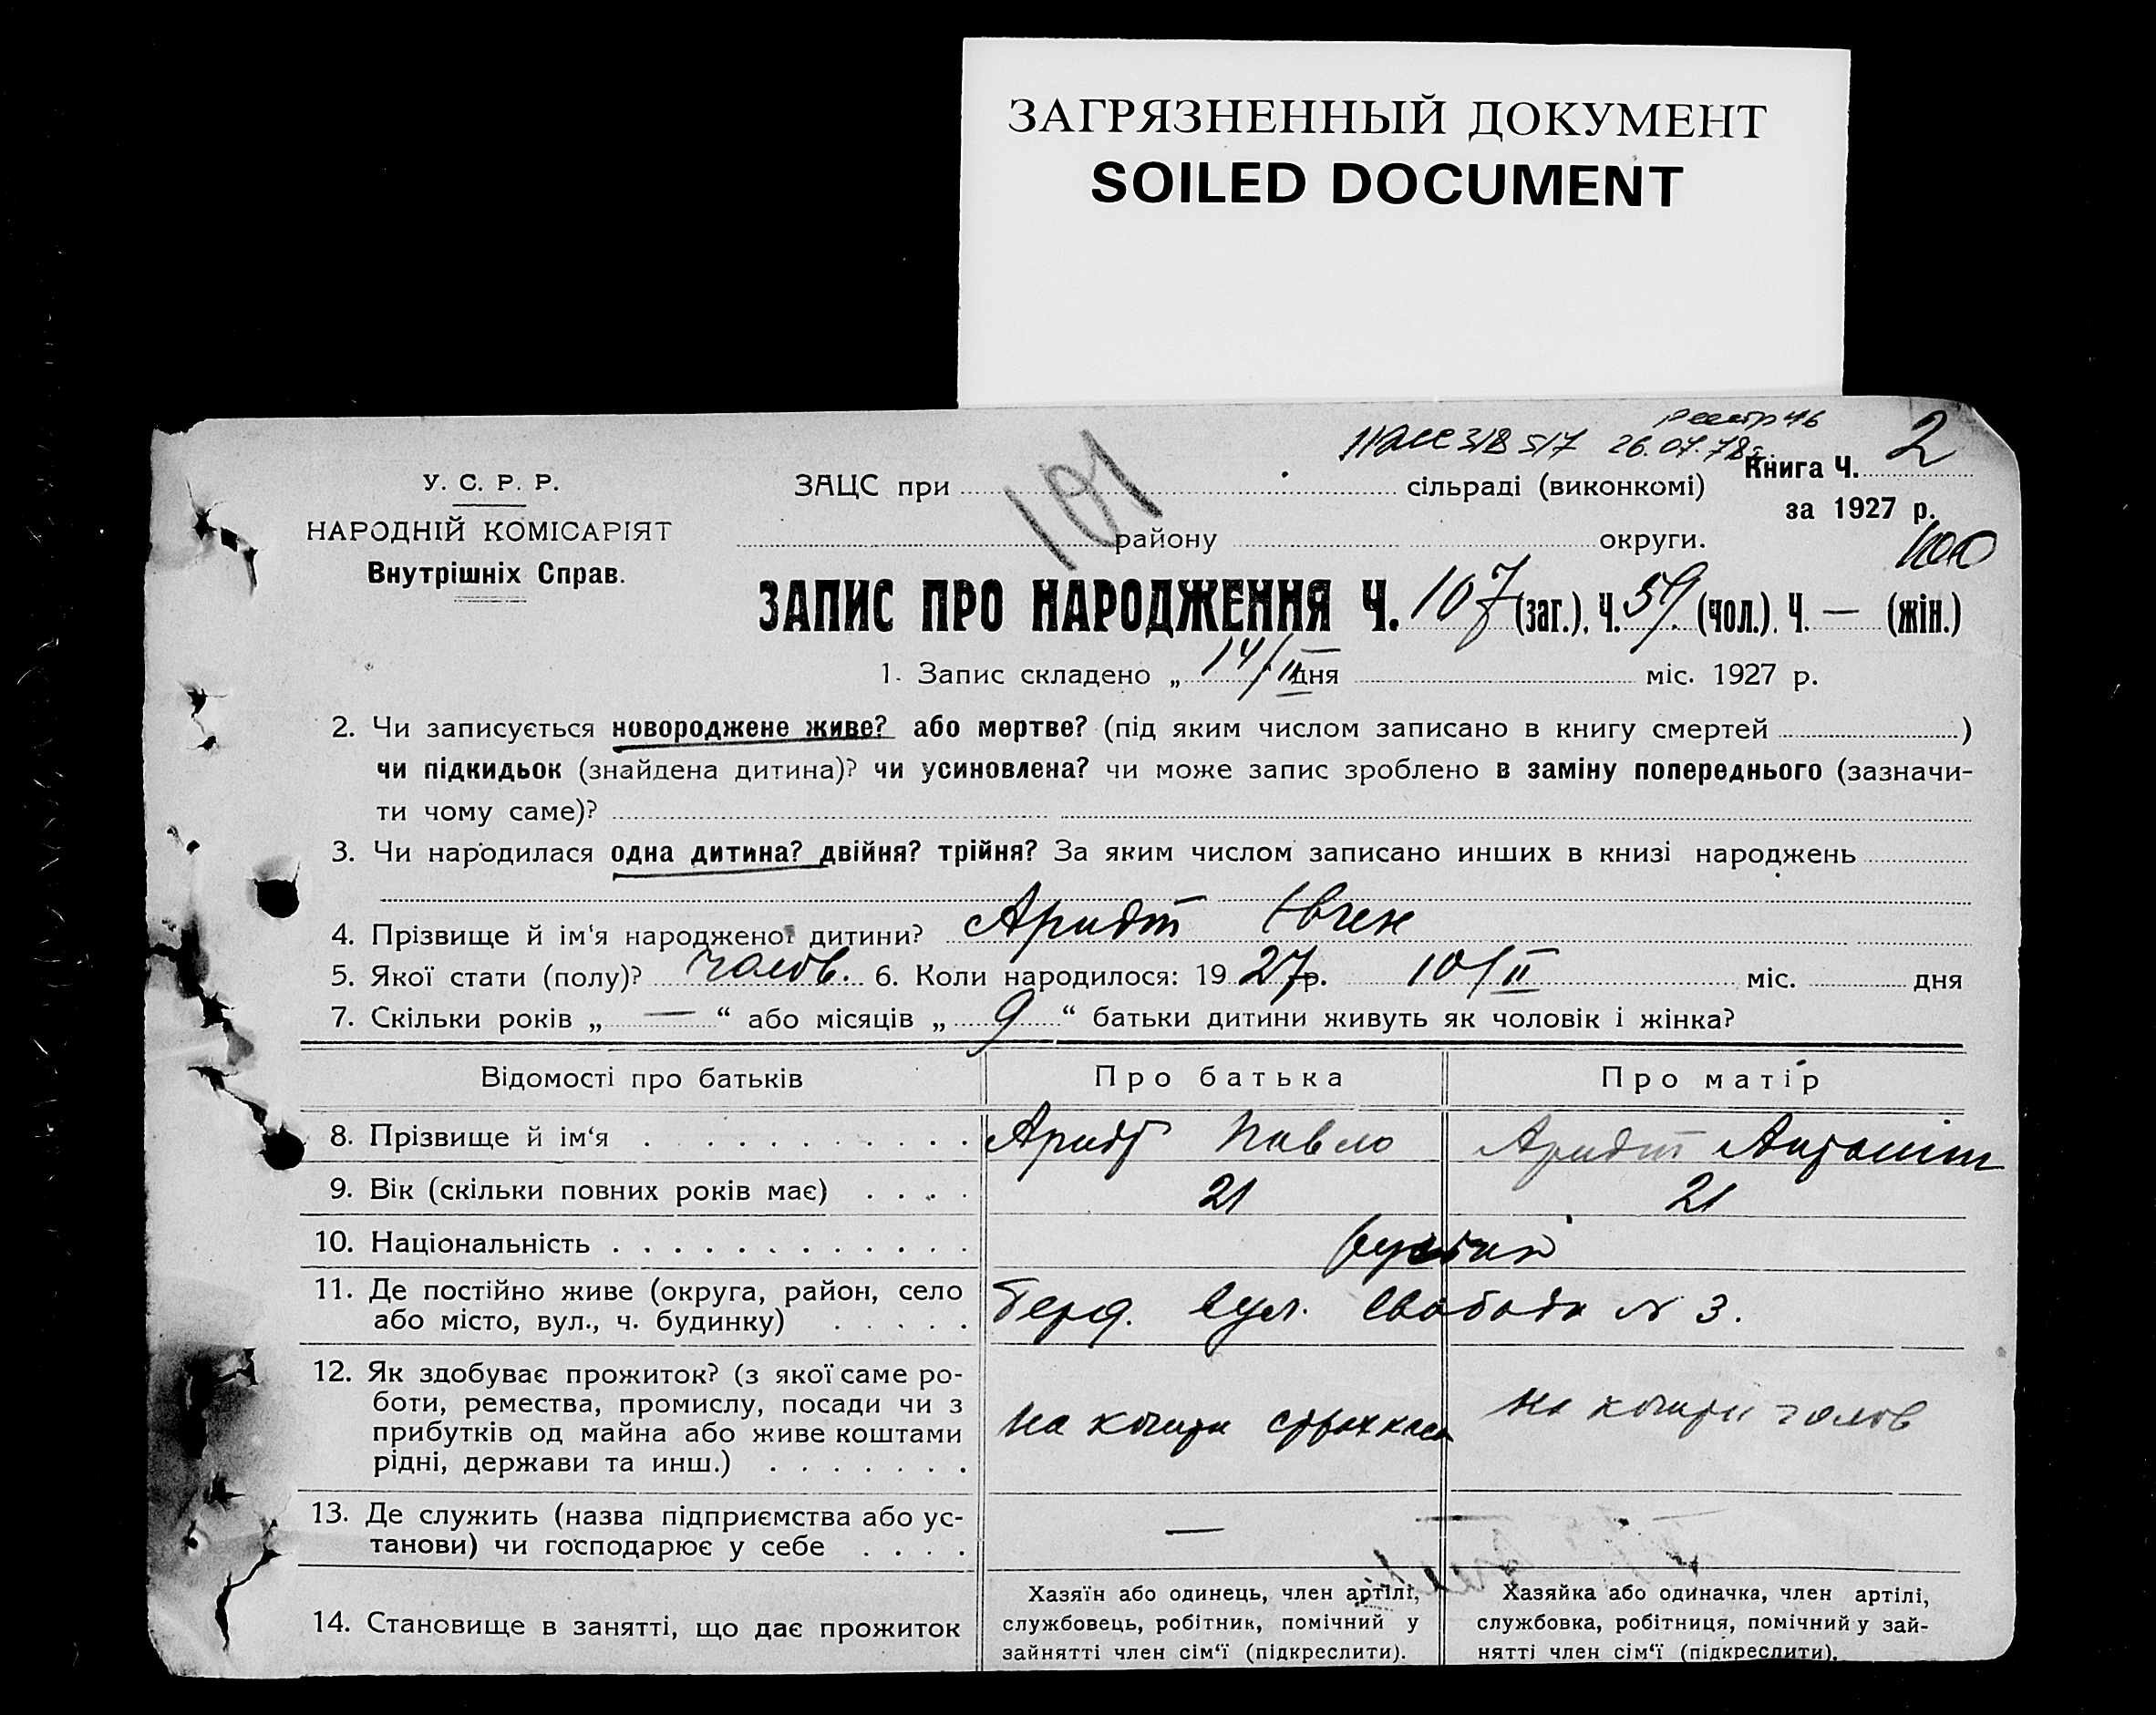 ЗАГРЯЗНЕННЫЙ ДОКУМЕНТ
SOILED DOCUMENT
26.07.78г.
У. С. Р. Р.
НАРОДНІЙ КОМІСАРІЯТ
Внутрішніх Справ.
101
ЗАЦС при сільраді (виконкомі)
Книга Ч. 2
за 1927 р.
району округи.
100
ЗАПИС ПРО НАРОДЖЕННЯ Ч. 107 (заг.), Ч. 59 (чол.), Ч. — (жін.)
1. Запис складено „ 14/II дня міс. 1927 р.
2. Чи записується новороджене живе? або мертве? (під яким числом записано в книгу смертей )
чи підкидьок (знайдена дитина)? чи усиновлена? чи може запис зроблено в заміну попереднього (зазначи-
ти чому саме)?
3. Чи народилася одна дитина? двійня? трійня? За яким числом записано инших в книзі народжень
4. Прізвище й ім‘я народженої дитини? Арндт Євген
5. Якої стати (полу)? чолов. 6. Коли народилося: 19 27 р. 10/II міс. дня
7. Скільки років „ — “ або місяців „ 9 “ батьки дитини живуть як чоловік і жінка?
Відомості про батьків Про батька Про матір
8. Прізвище й ім‘я Арндт Павло Арндт
9. Вік (скільки повних років має) 21 21
10. Національність
11. Де постійно живе (округа, район, село
або місто, вул., ч. будинку)
Берд. вул. Свободи № 3.
12. Як здобуває прожиток? (з якої саме ро-
боти, ремества, промислу, посади чи з
прибутків од майна або живе коштами
рідні, держави та инш.)
на кошти страхкаси
на кошти чолов
13. Де служить (назва підприємства або ус-
танови) чи господарює у себе
—
14. Становище в занятті, що дає прожиток
Хазяїн або одинець, член артілі,
службовець, робітник, помічний у
зайнятті член сім‘ї (підкреслити).
Хазяйка або одиначка, член артілі,
службовка, робітниця, помічний у зай-
нятті член сім‘ї (підкреслити).